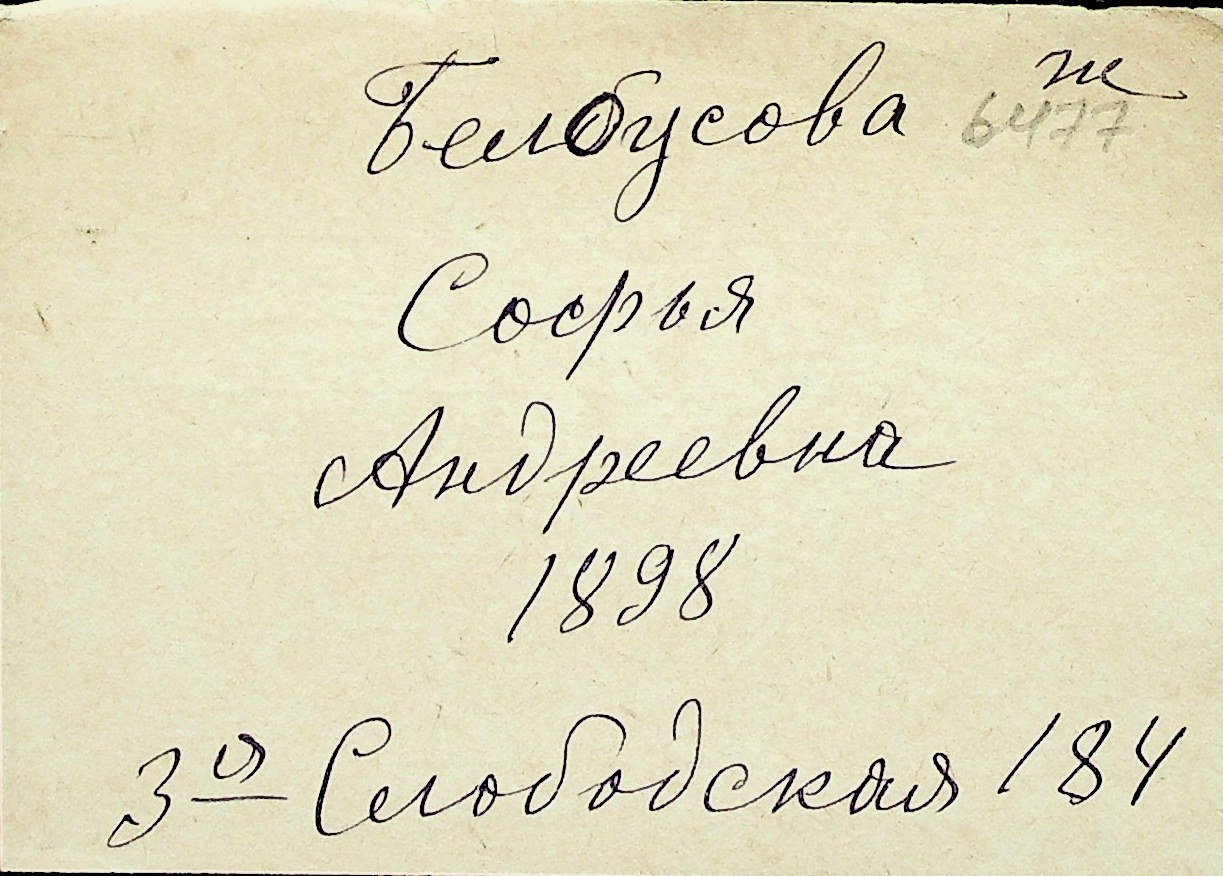 Белбусова ж
6477
Софья
Андреевна
1898
3ья Слободская 184